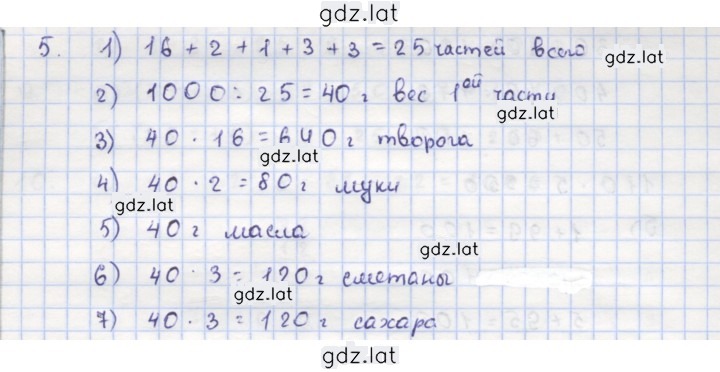 gdz.lat
5. 1) 16 + 2 + 1 + 3 + 3 = 25 частей всего
gdz.lat
2) 1000 : 25 = 40 г вес 1ой части
gdz.lat
3) 40 · 16 = 640 г творога
gdz.lat
4) 40 · 2 = 80 г муки
gdz.lat
5) 40 г масла
gdz.lat
6) 40 · 3 = 120 г сметаны
gdz.lat
7) 40 · 3 = 120 г сахара
gdz.lat